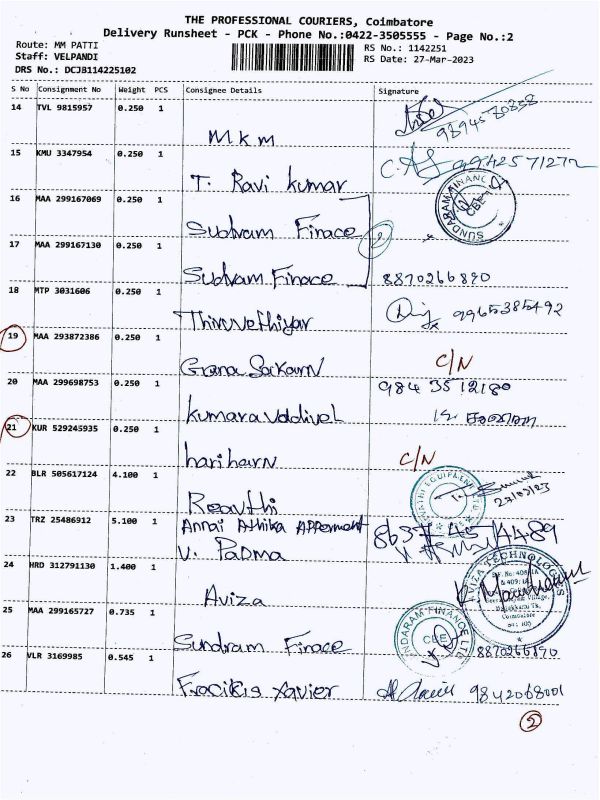 THE PROFESSIONAL COURIERS, Coimbatore
Delivery Runsheet - PCK - Phone No.:0422-3505555 - Page No.:2
Route: MM PATTI
Staff: VELPANDI
DRS No.: DCJB114225102
RS No.: 1142251
RS Date: 27-Mar-2023
S No Consignment No Weight PCS Consignee Details Signature
14 TVL 9815957 0.250 1
M k m
15 KMU 3347954 0.250 1
T. Ravi kumar
16 MAA 299167069 0.250 1
Sudram Finace
SUNDARAM FINANCE CBE
17 MAA 299167130 0.250 1
Sudram Finace 8870266890
18 MTP 3031606 0.250 1
9965385492
19 MAA 293872386 0.250 1
C/N
20 MAA 299698753 0.250 1
984 3512180
kumara Vadivel
21 KUR 529245935 0.250 1
hariharn C/N
22 BLR 505617124 4.100 1
Revathi 27/03/23
23 TRZ 25486912 5.100 1
Annai Athika Apperment
V. Padma
24 HRD 312791130 1.400 1
Aviza
AVIZA TECHNOLOGIES
Coimbatore
25 MAA 299165727 0.735 1
SUNDARAM FINANCE LTD CBE
Sundram Finace 8870266890
26 VLR 3169985 0.545 1
Xavier 9842068001
5